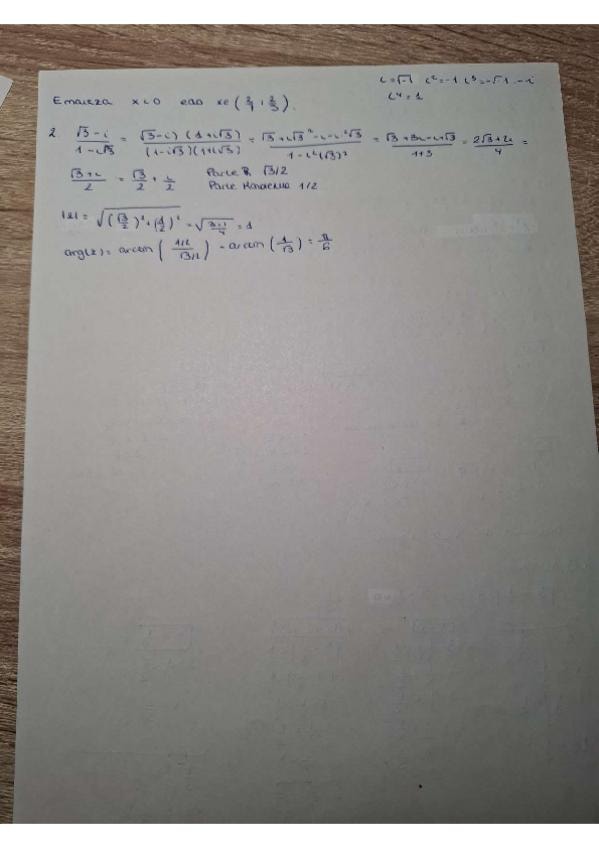 i=√-1 i²=-1 i³=-√-1=-i
i⁴=1
x<0
2 (√3-i)/(1-i√3) = ((√3-i)(1+i√3))/((1-i√3)(1+i√3)) = (√3+i√3²-i-i²√3)/(1-i²(√3)²) = (√3+3i-i+√3)/(1+3) = (2√3+2i)/4 =
(√3+i)/2 = √3/2 + i/2 Parte √3/2
Parte 1/2
|z|= √((√3/2)²+(1/2)²) = √((3+1)/4) = 1
arg(z)= arctan((1/2)/(√3/2)) = arctan(1/√3) = π/6